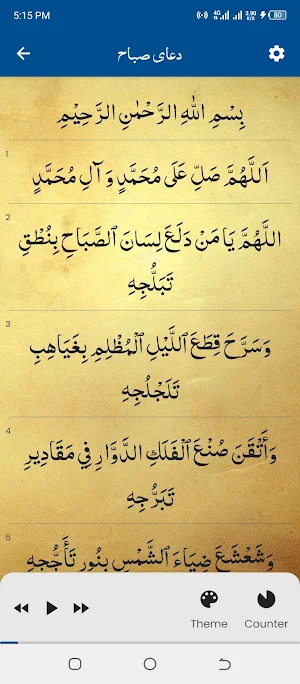 5:15 PM 4G 3.90 K/S 80
دعای صباح
بِسْمِ اللهِ الرَّحْمٰنِ الرَّحِيْمِ
1
اَللّٰهُمَّ صَلِّ عَلَى مُحَمَّدٍ وَ آلِ مُحَمَّدٍ
2
اللَّهُمَّ يَا مَنْ دَلَعَ لِسَانَ ٱلصَّبَاحِ بِنُطْقِ
تَبَلُّجِهِ
3
وَسَرَّحَ قِطَعَ ٱللَّيْلِ ٱلْمُظْلِمِ بِغَيَاهِبِ
تَلَجْلُجِهِ
4
وَأَتْقَنَ صُنْعَ ٱلْفَلَكِ ٱلدَّوَّارِ فِي مَقَادِيرِ
تَبَرُّجِهِ
5
وَشَعْشَعَ ضِيَاءَ ٱلشَّمْسِ بِنُورِ تَأَجُّجِهِ
Theme Counter